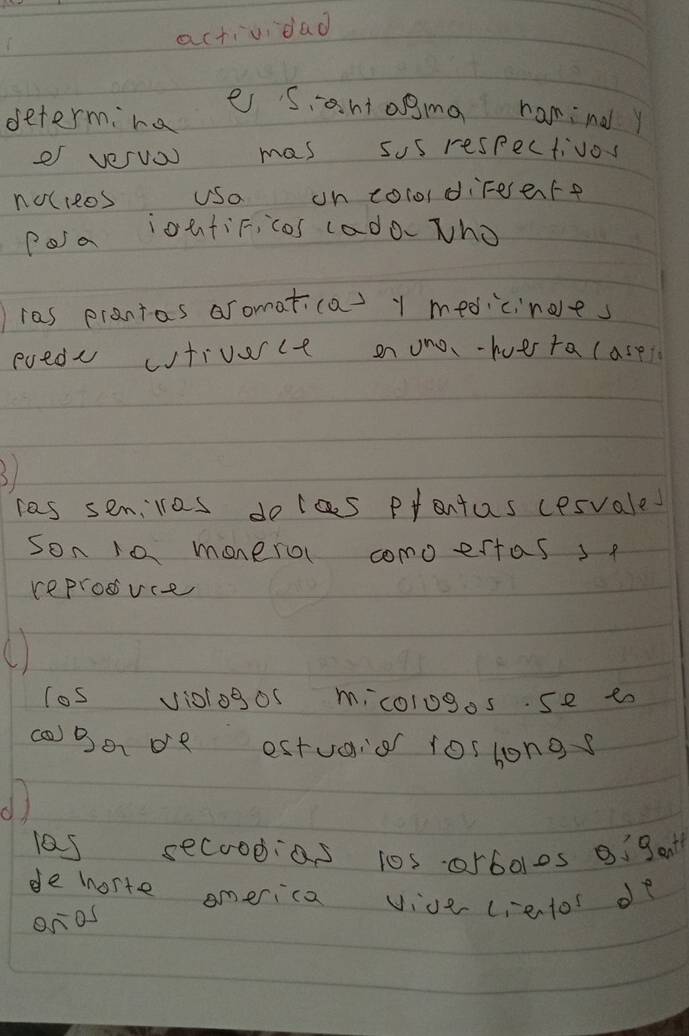 actividad
determina el siantagma naminal y
el verval mas sus respectivos
nucleos usa un color diferente
para identificar cada uno
) las plantas aromaticas y medicinales
puede cutiverce en una huerta casera
B)
las semillas de las plantas cesvales
son la manera como estas se
reproduce
C)
los viologos micologos se en
cargan de estudiar los hongos
d)
las secuodias los arboles gigant
de norte america viven cientos de
años